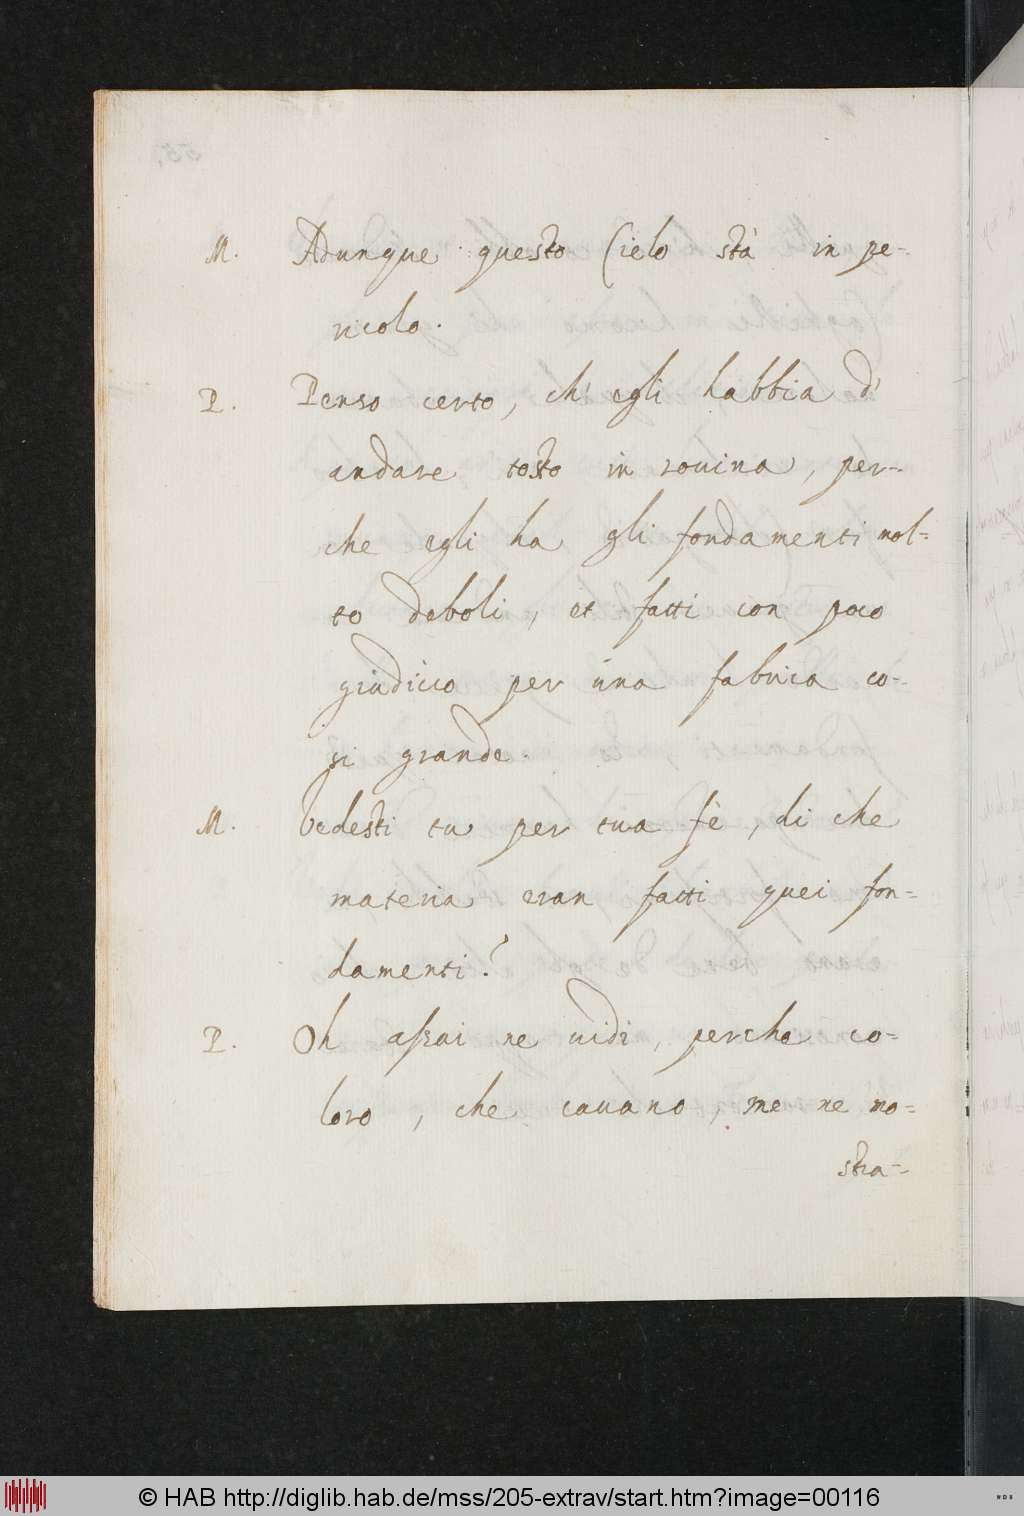 M. Adunque questo Cielo stà in pe-
ricolo.
P. Penso certo, ch' egli habbia d'
andare tosto in rouina, per-
che egli ha gli fondamenti mol=
to deboli, et fatti con poco
giudicio per una fabrica co-
si grande.
M. Vedesti tu per tua fè, di che
materia eran fatti quei fon=
damenti?
P. Oh assai ne uidi, perche co-
loro, che cauano, me ne mo=
stra=
© HAB http://diglib.hab.de/mss/205-extrav/start.htm?image=00116